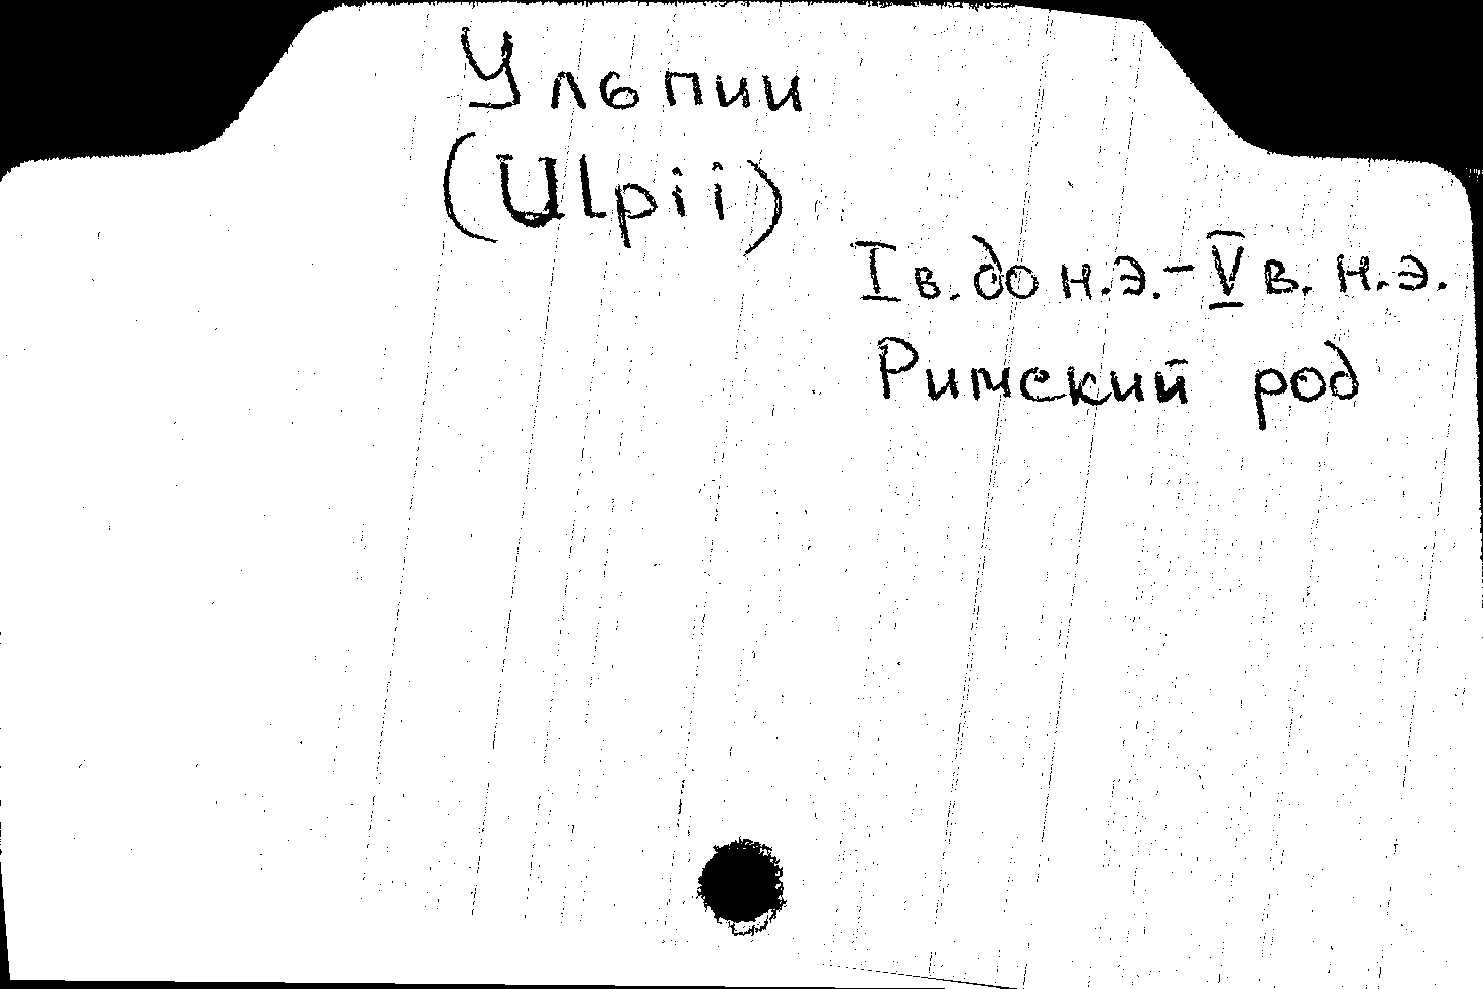 Ульпии
(Ulpii)
I в. до н.э. - V в. н.э.
Римский род